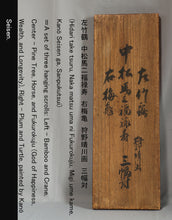 左竹鶴 中松馬ニ福禄寿 右梅亀 狩野晴川画 三幅対
(Hidari take tsuru, Naka matsu uma ni Fukurokuju, Migi ume kame,
Kanō Seisen ga, Sanpukutsui)
= A set of three hanging scrolls: Left – Bamboo and Crane,
Center – Pine Tree, Horse, and Fukurokuju (God of Happiness,
Wealth, and Longevity), Right – Plum and Turtle, painted by Kanō
Seisen.
左竹鶴 狩野晴川画
中松馬ニ福禄寿 三幅対
右梅亀